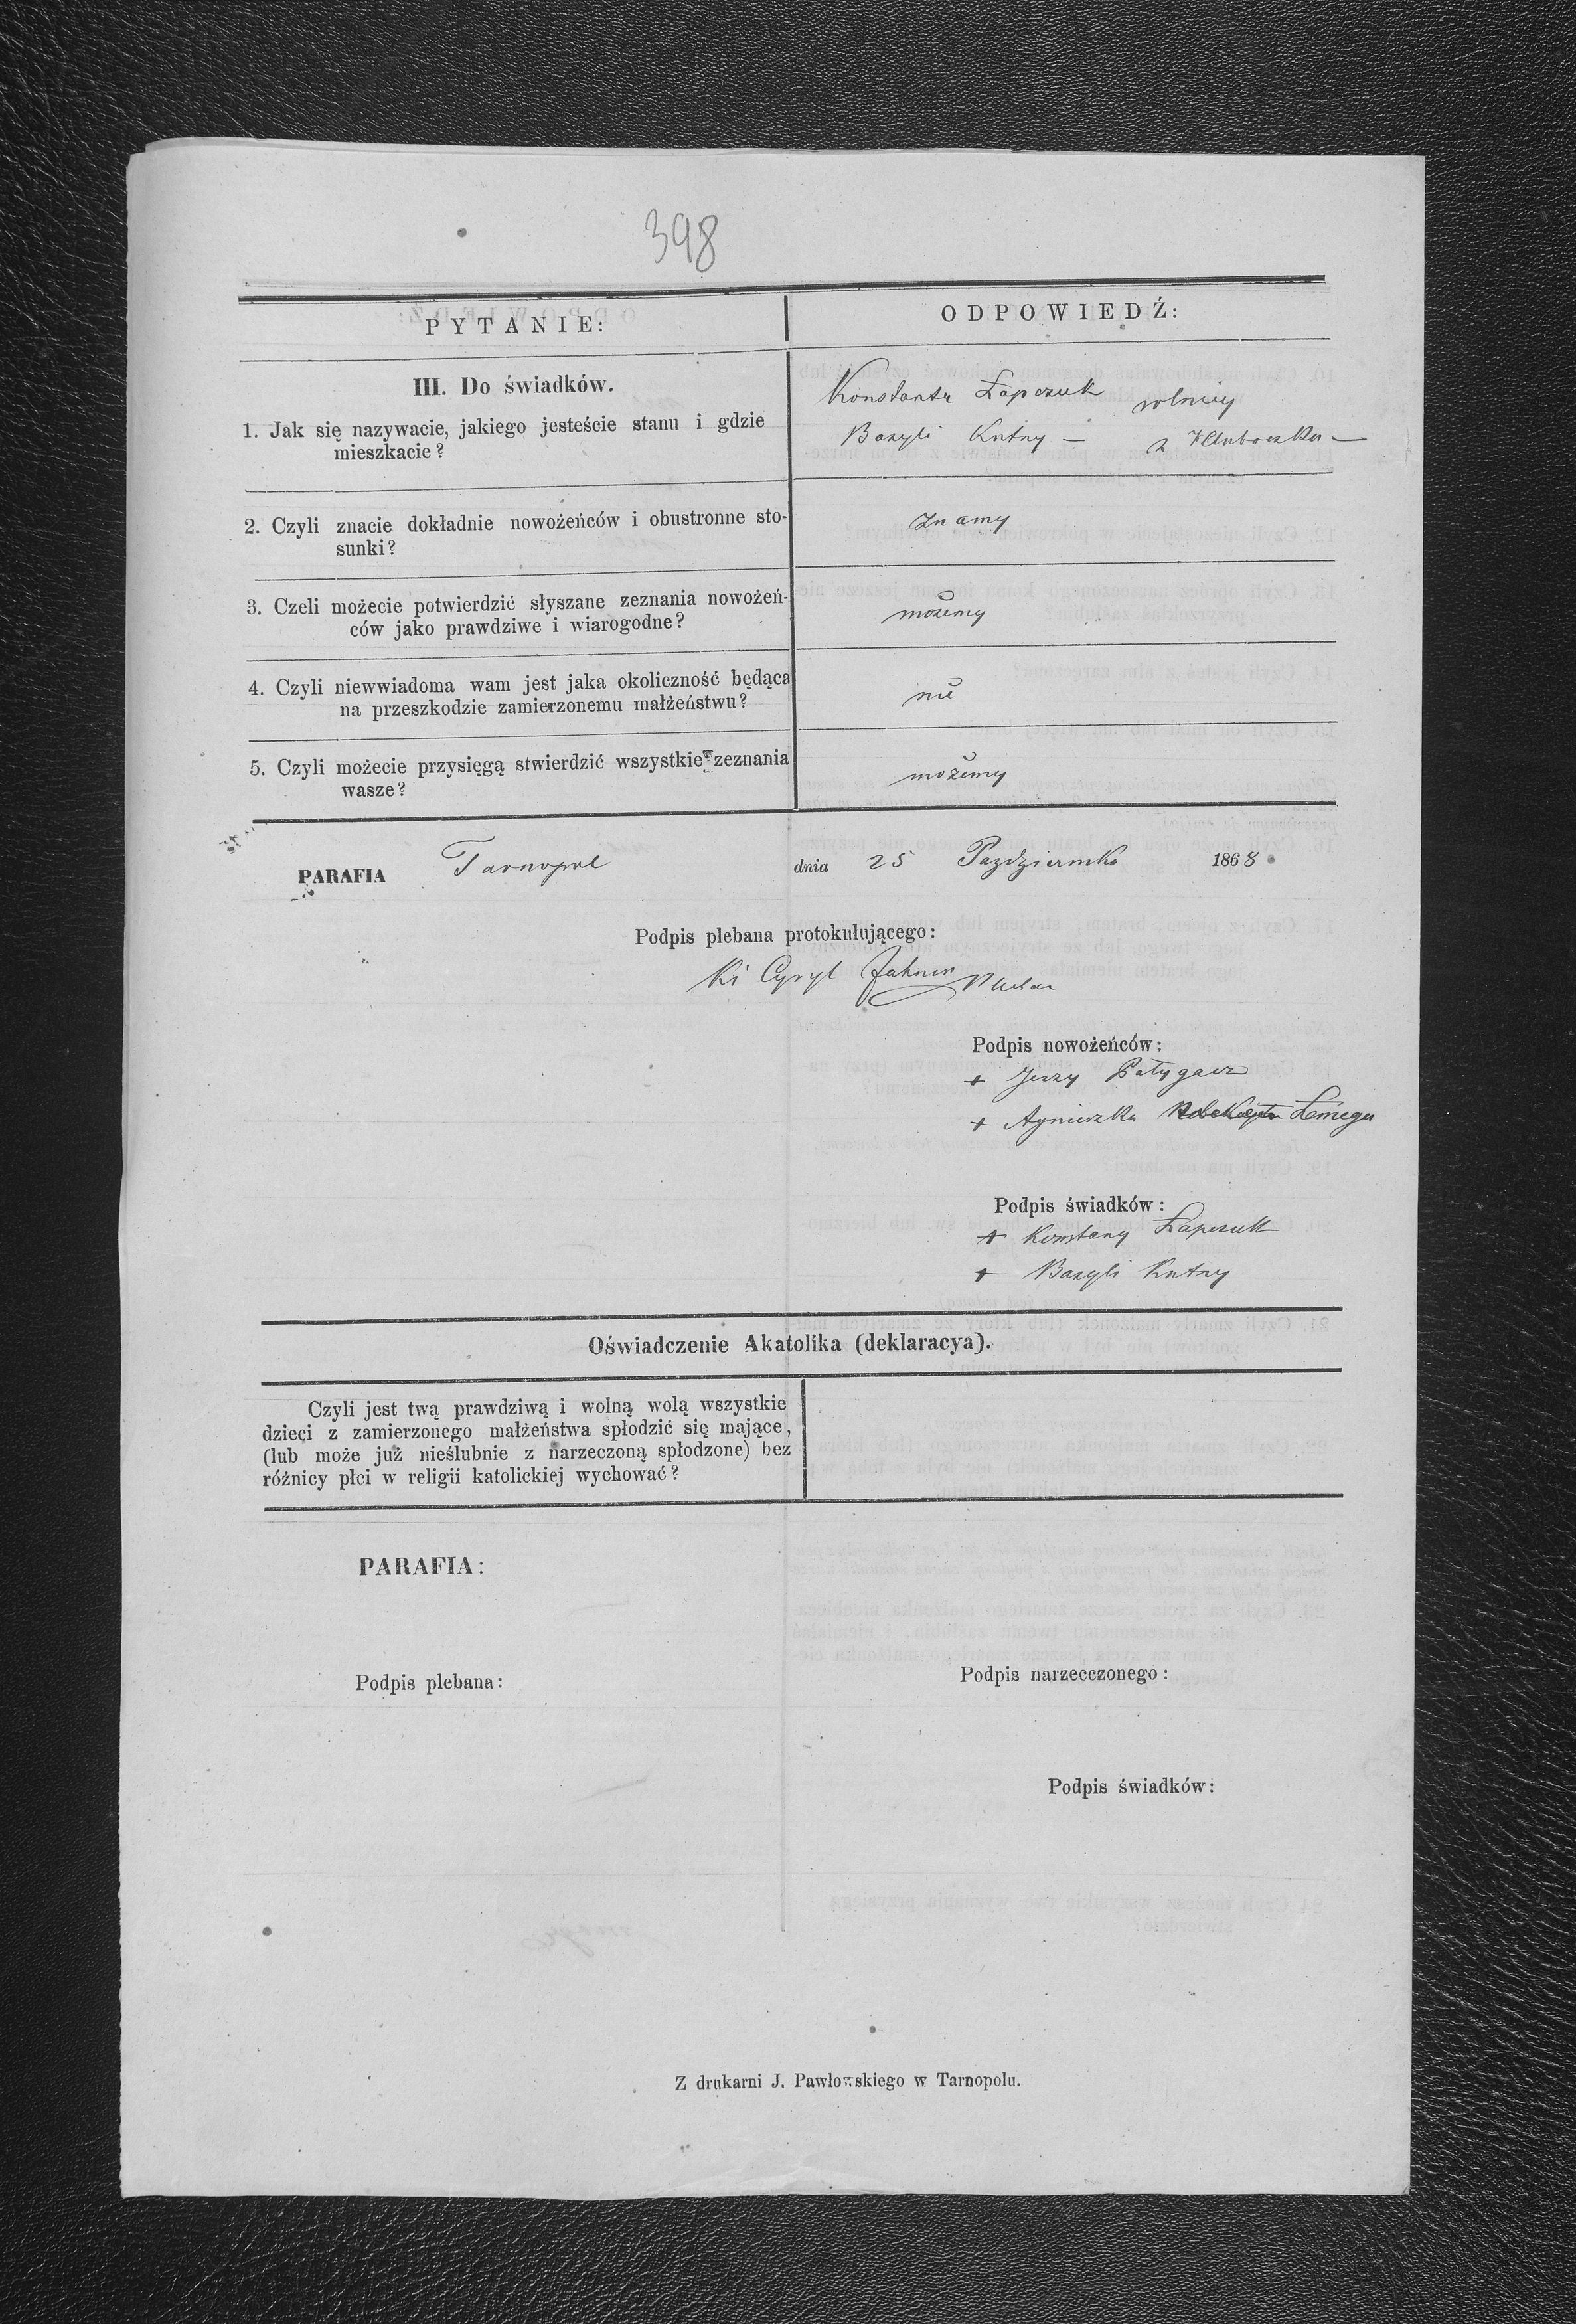 398
PYTANIE:
ODPOWIEDŹ:
III. Do świadków.
1. Jak się nazywacie, jakiego jesteście stanu i gdzie
mieszkacie?
Konstanty Łapczuk rolnicy
Bazyli Kutny — z Hluboczka —
2. Czyli znacie dokładnie nowożeńców i obustronne sto-
sunki?
znamy
3. Czeli możecie potwierdzić słyszane zeznania nowożeń-
ców jako prawdziwe i wiarogodne?
možemy
4. Czyli niewwiadoma wam jest jaka okoliczność będąca
na przeszkodzie zamierzonemu małżeństwu?
nie
5. Czyli możecie przysięgą stwierdzić wszystkie zeznania
wasze?
možemy
PARAFIA Tarnopol dnia 25 Pazdziernika 1868
Podpis plebana protokułującego:
Cyryl
Podpis nowożeńców:
+ Jerzy Bałygacz
+ Agnieszka
Podpis świadków:
+ Konstanty Łapczuk
+ Bazyli Kutny
Oświadczenie Akatolika (deklaracya).
Czyli jest twą prawdziwą i wolną wolą wszystkie
dzieci z zamierzonego małżeństwa spłodzić się mające,
(lub może już nieślubnie z narzeczoną spłodzone) bez
różnicy płci w religii katolickiej wychować?
PARAFIA:
Podpis plebana:
Podpis narzecczonego:
Podpis świadków:
Z drukarni J. Pawłowskiego w Tarnopolu.